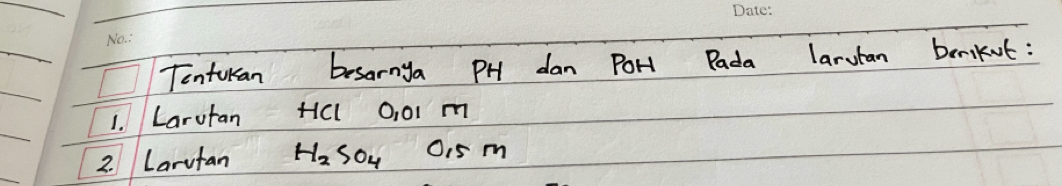 Date:
No.:
Tentukan besarnya PH dan POH Pada larutan berikut:
1. Larutan HCl 0,01 m
2. Larutan H₂SO₄ 0,5 m